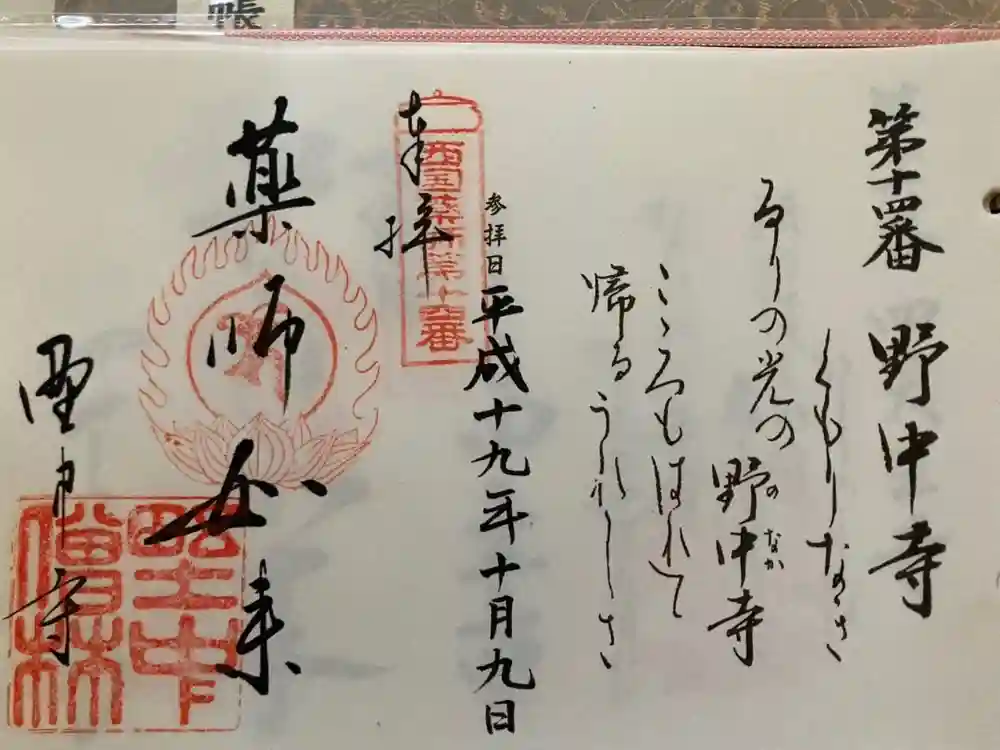 帳
第十四番 野中寺
くもりなき
るりの光の 野中寺
のなか
こゝろもはれて
帰るうれしさ
参拝日 平成十九年十月九日
奉拝
西国薬師第十四番
薬師如来
野中寺
野中僧林